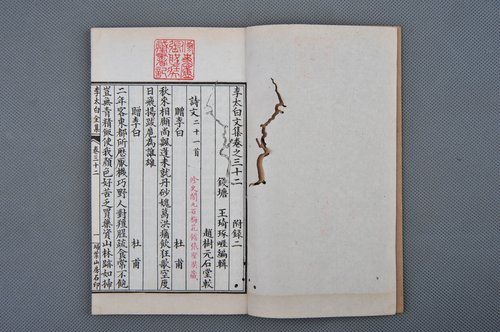 李太白文集卷之三十二 附錄二
錢塘 王琦琢崖編輯
趙樹元石堂較
詩文二十一首
贈李白 杜甫
秋來相顧尚飄蓬未就丹砂媿葛洪痛飲狂歌空度
日飛揚跋扈為誰雄
贈李白 杜甫
二年客東都所歷厭機巧野人對羶腥蔬食常不飽
豈無青精飯使我顏色好苦乏買藥資山林跡如掃
李太白全集 卷三十二 一 掃葉山房石印